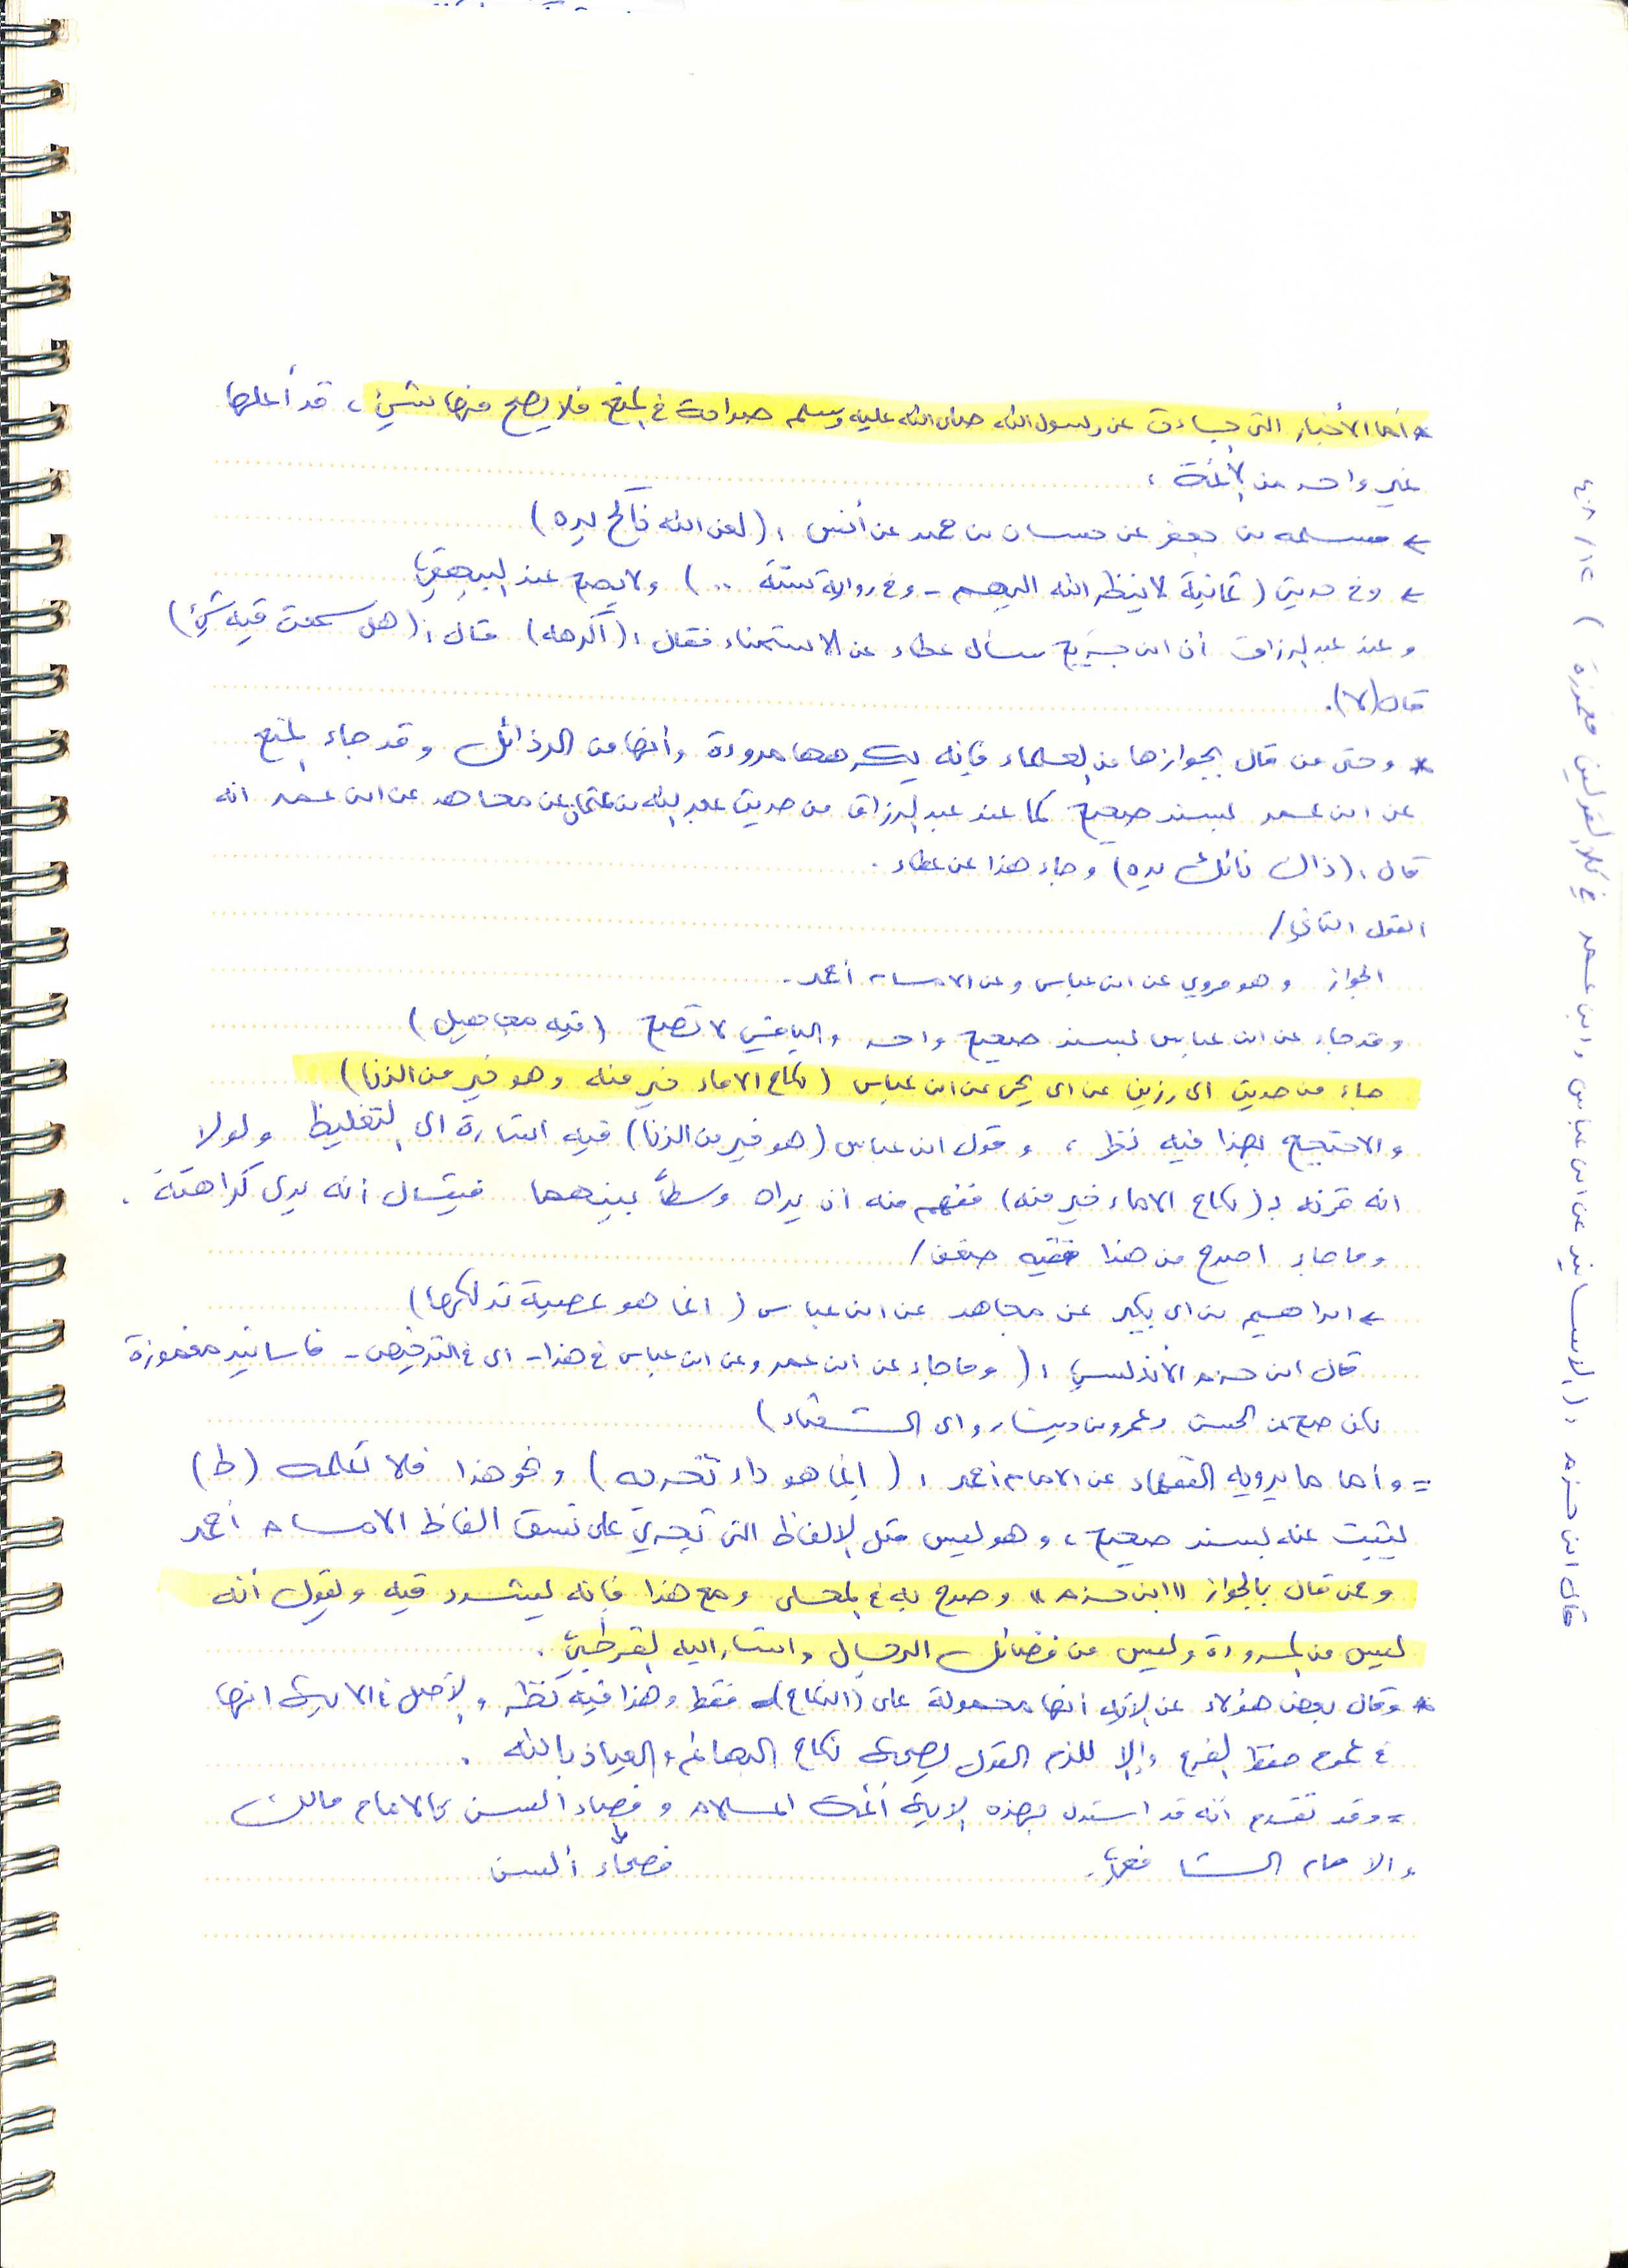 * أما الأخبار التي جاءت عن رسول الله صلى الله عليه وسلم صراحة في المنع فلا يصح منها شيء ، قد أعلها
غير واحد من الأئمة :
← مسلمه بن جعفر عن حسان بن حميد عن أنس : (لعن الله ناكح يده)
← وفي حديث (ثمانية لا ينظر الله اليهم - وفي رواية ستة ..) ولا يصح عند البيهقي
وعند عبد الرزاق أن ابن جريج سأل عطاء عن الاستمناء فقال : (أكرهه) قال : (هل سمعت فيه شيء)
قال (لا).
* وحتى من قال بجوازها من العلماء فإنه يكرهها مروءة وأنها من الرذائل وقد جاء المنع
عن ابن عمر بسند صحيح كما عند عبد الرزاق من حديث عبد الله بن عثمان عن مجاهد عن ابن عمر انه
قال : (ذاك نائك يده) وجاء هذا عن عطاء .
القول الثاني /
الجواز وهو مروي عن ابن عباس وعن الامام أحمد .
وقد جاء عن ابن عباس بسند صحيح واحد والباقي لا تصح (فيه مجاهيل)
جاء من حديث ابي رزين عن ابي يحيى عن ابن عباس (نكاح الاماء خير منه وهو خير من الزنا)
والاحتجاج بهذا فيه نظر ، وقول ابن عباس (هو خير من الزنا) فيه اشارة الى التغليظ ولولا
انه قرنه بـ (نكاح الاماء خير منه) ففهم منه ان يراه وسطاً بينهما فيقال أنه يرى كراهته .
وما جاء اصرح من هذا ففيه ضعف /
← ابراهيم بن ابي بكير عن مجاهد عن ابن عباس (انما هو عصبة تدلكها)
قال ابن حزم الأندلسي : (وما جاء عن ابن عمر وعن ابن عباس في هذا - اي في الترخيص - فأسانيد مغموزة
لكن صح عن الحسن وعمرو بن دينار وابي الشعثاء)
= وأما ما يرويه الفقهاء عن الامام أحمد : (إنما هو داء تخرجه) ونحو هذا فلا نعلمه (ط)
يثبت عنه بسند صحيح ، وهو ليس مثل الالفاظ التي تجري على نسق الفاظ الامام أحمد
وممن قال بالجواز "ابن حزم" وصرح به في المحلى ومع هذا فإنه يشدد فيه ويقول أنه
ليس من المروءة وليس من فضائل الرجال وأشار اليه القرطبي .
* وقال بعض هؤلاء عن الآية أنها محمولة على (النكاح) فقط وهذا فيه نظر والأصل في الآية انها
في عموم حفظ الفرج وإلا للزم القول بصحة نكاح البهائم والعياذ بالله .
= وقد تقدم أنه قد استدل بهذه الآية أئمة الاسلام وفصحاء ألسن كالامام مالك
والامام الشافعي . فصحاء ألسن
قال ابن حزم : (الأسانيد عن ابن عباس وابن عمر في كلا القولين مغموزة) ١٢/٤٠٨